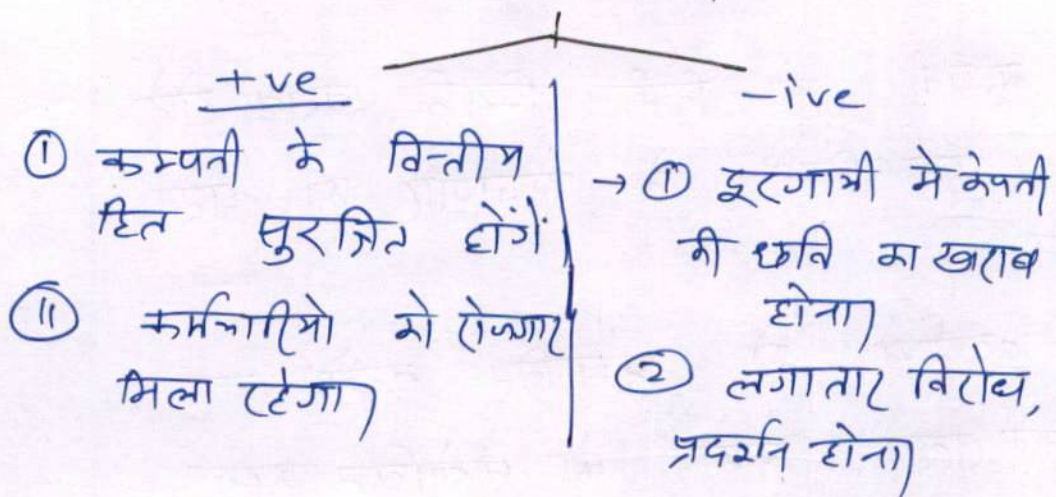 +ve
① कम्पनी के वित्तीय
हित सुरक्षित होंगें
⑪ कर्मचारियो को रोजगार
मिला रहेगा
-ive
→ ① दूरगामी मे कंपनी
की छवि का खराब
होना
② लगातार विरोध,
प्रदर्शन होना